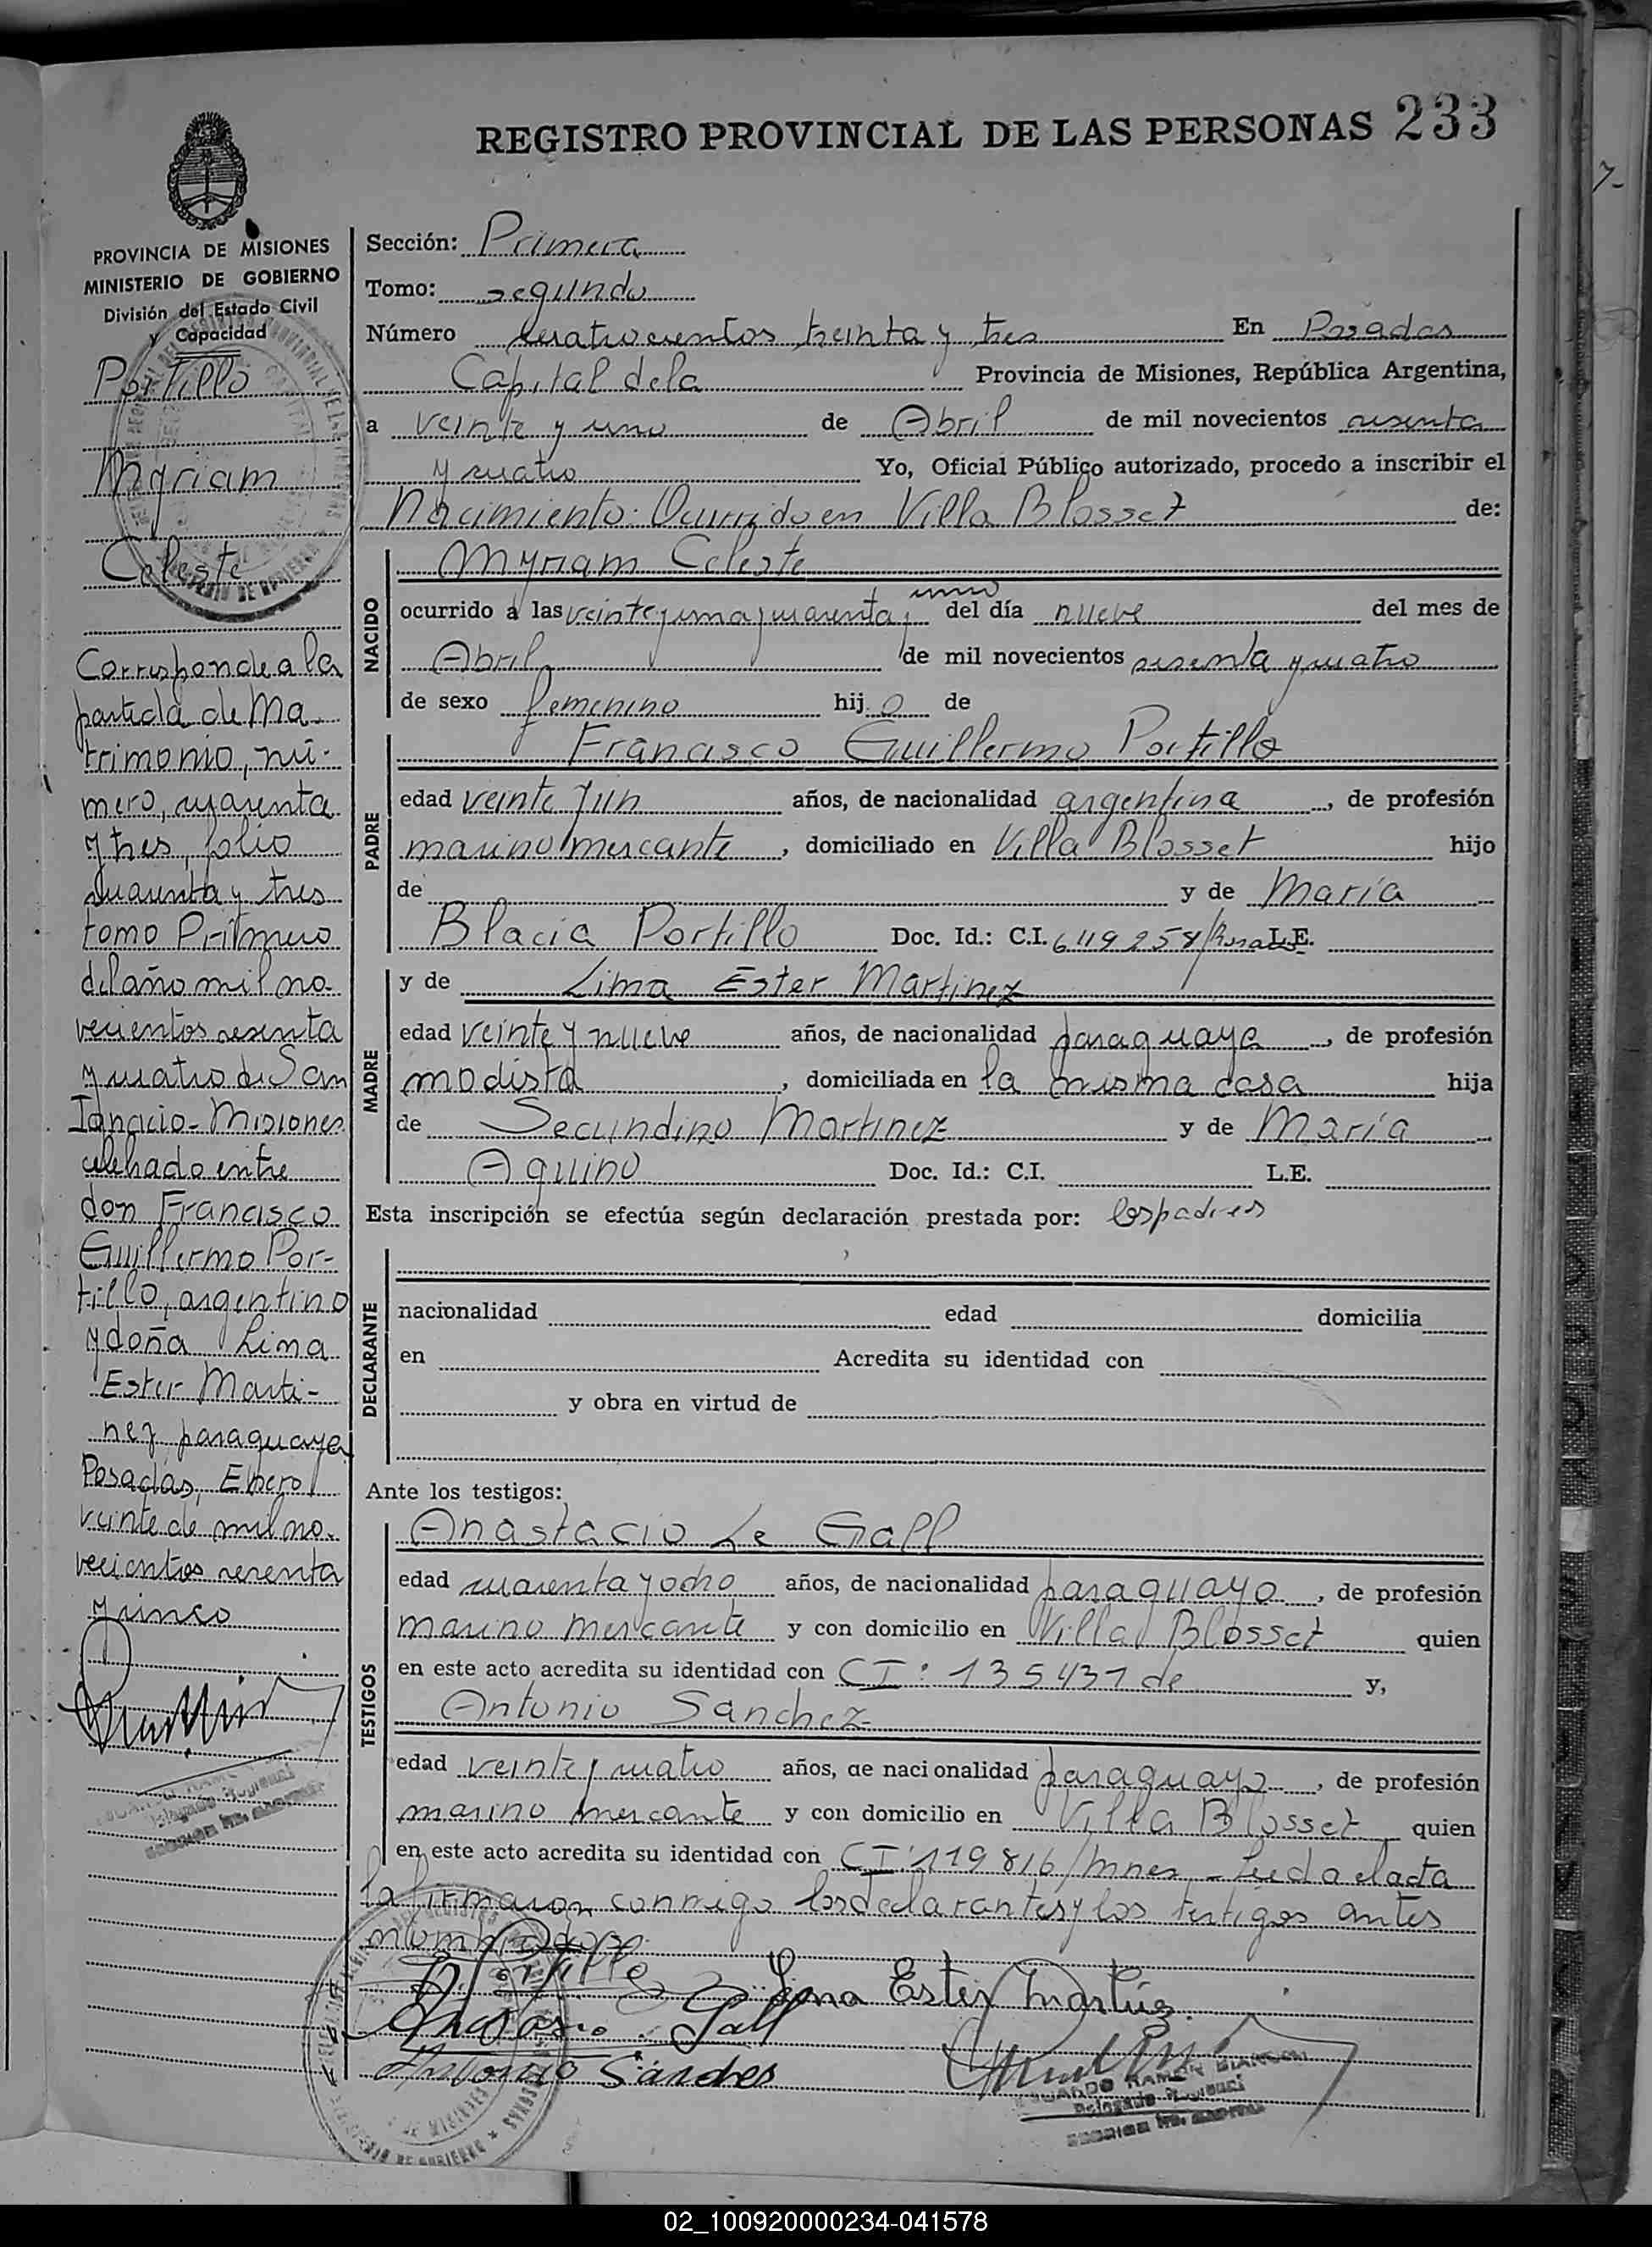 REGISTRO PROVINCIAL DE LAS PERSONAS 233
PROVINCIA DE MISIONES
MINISTERIO DE GOBIERNO
División del Estado Civil
y Capacidad
Portillo
Myriam
Celeste
Corresponde a la
partida de Ma-
trimonio, nú-
mero, cuarenta
y tres, folio
cuarenta y tres
tomo Primero
del año mil no-
vecientos sesenta
y cuatro de San
Ignacio - Misiones
celebrado entre
don Francisco
Guillermo Por-
tillo, argentino
y doña Lima
Ester Marti-
nez paraguaya
Posadas, Enero
veinte de mil no-
vecientos sesenta
y cinco
Sección: Primera
Tomo: segundo
Número cuatrocientos treinta y tres En Posadas
Capital de la Provincia de Misiones, República Argentina,
a veinte y uno de Abril de mil novecientos sesenta
y cuatro Yo, Oficial Público autorizado, procedo a inscribir el
Nacimiento: Ocurrido en Villa Blosset de:
NACIDO
Myriam Celeste
uno
ocurrido a las veinte y una y cuarenta y del día nueve del mes de
Abril de mil novecientos sesenta y cuatro
de sexo femenino hij a de
PADRE
Francisco Guillermo Portillo
edad veinte y un años, de nacionalidad argentina, de profesión
marino mercante, domiciliado en Villa Blosset hijo
de y de María
Blacia Portillo Doc. Id.: C.I. 6119258 L.E.
MADRE
y de Lima Ester Martinez
edad veinte y nueve años, de nacionalidad paraguaya, de profesión
modista, domiciliada en la misma casa hija
de Secundino Martinez y de María
Aquino Doc. Id.: C.I. L.E.
Esta inscripción se efectúa según declaración prestada por: los padres
DECLARANTE
nacionalidad edad domicilia
en Acredita su identidad con
y obra en virtud de
Ante los testigos:
TESTIGOS
Anastacio Le Gall
edad cuarenta y ocho años, de nacionalidad paraguayo, de profesión
marino mercante y con domicilio en Villa Blosset quien
en este acto acredita su identidad con CI: 135431 de y,
Antonio Sanchez
edad veinte y cuatro años, de nacionalidad paraguayo, de profesión
marino mercante y con domicilio en Villa Blosset quien
en este acto acredita su identidad con CI: 119816/Mnes - Leida el acta
la firmaron conmigo los declarantes y los testigos antes
nombrados
Portillo Lima Ester Martínez
Gall
Antonio Sandes
EDUARDO RAMON BIANCONI
Delegado Regional
02_100920000234-041578